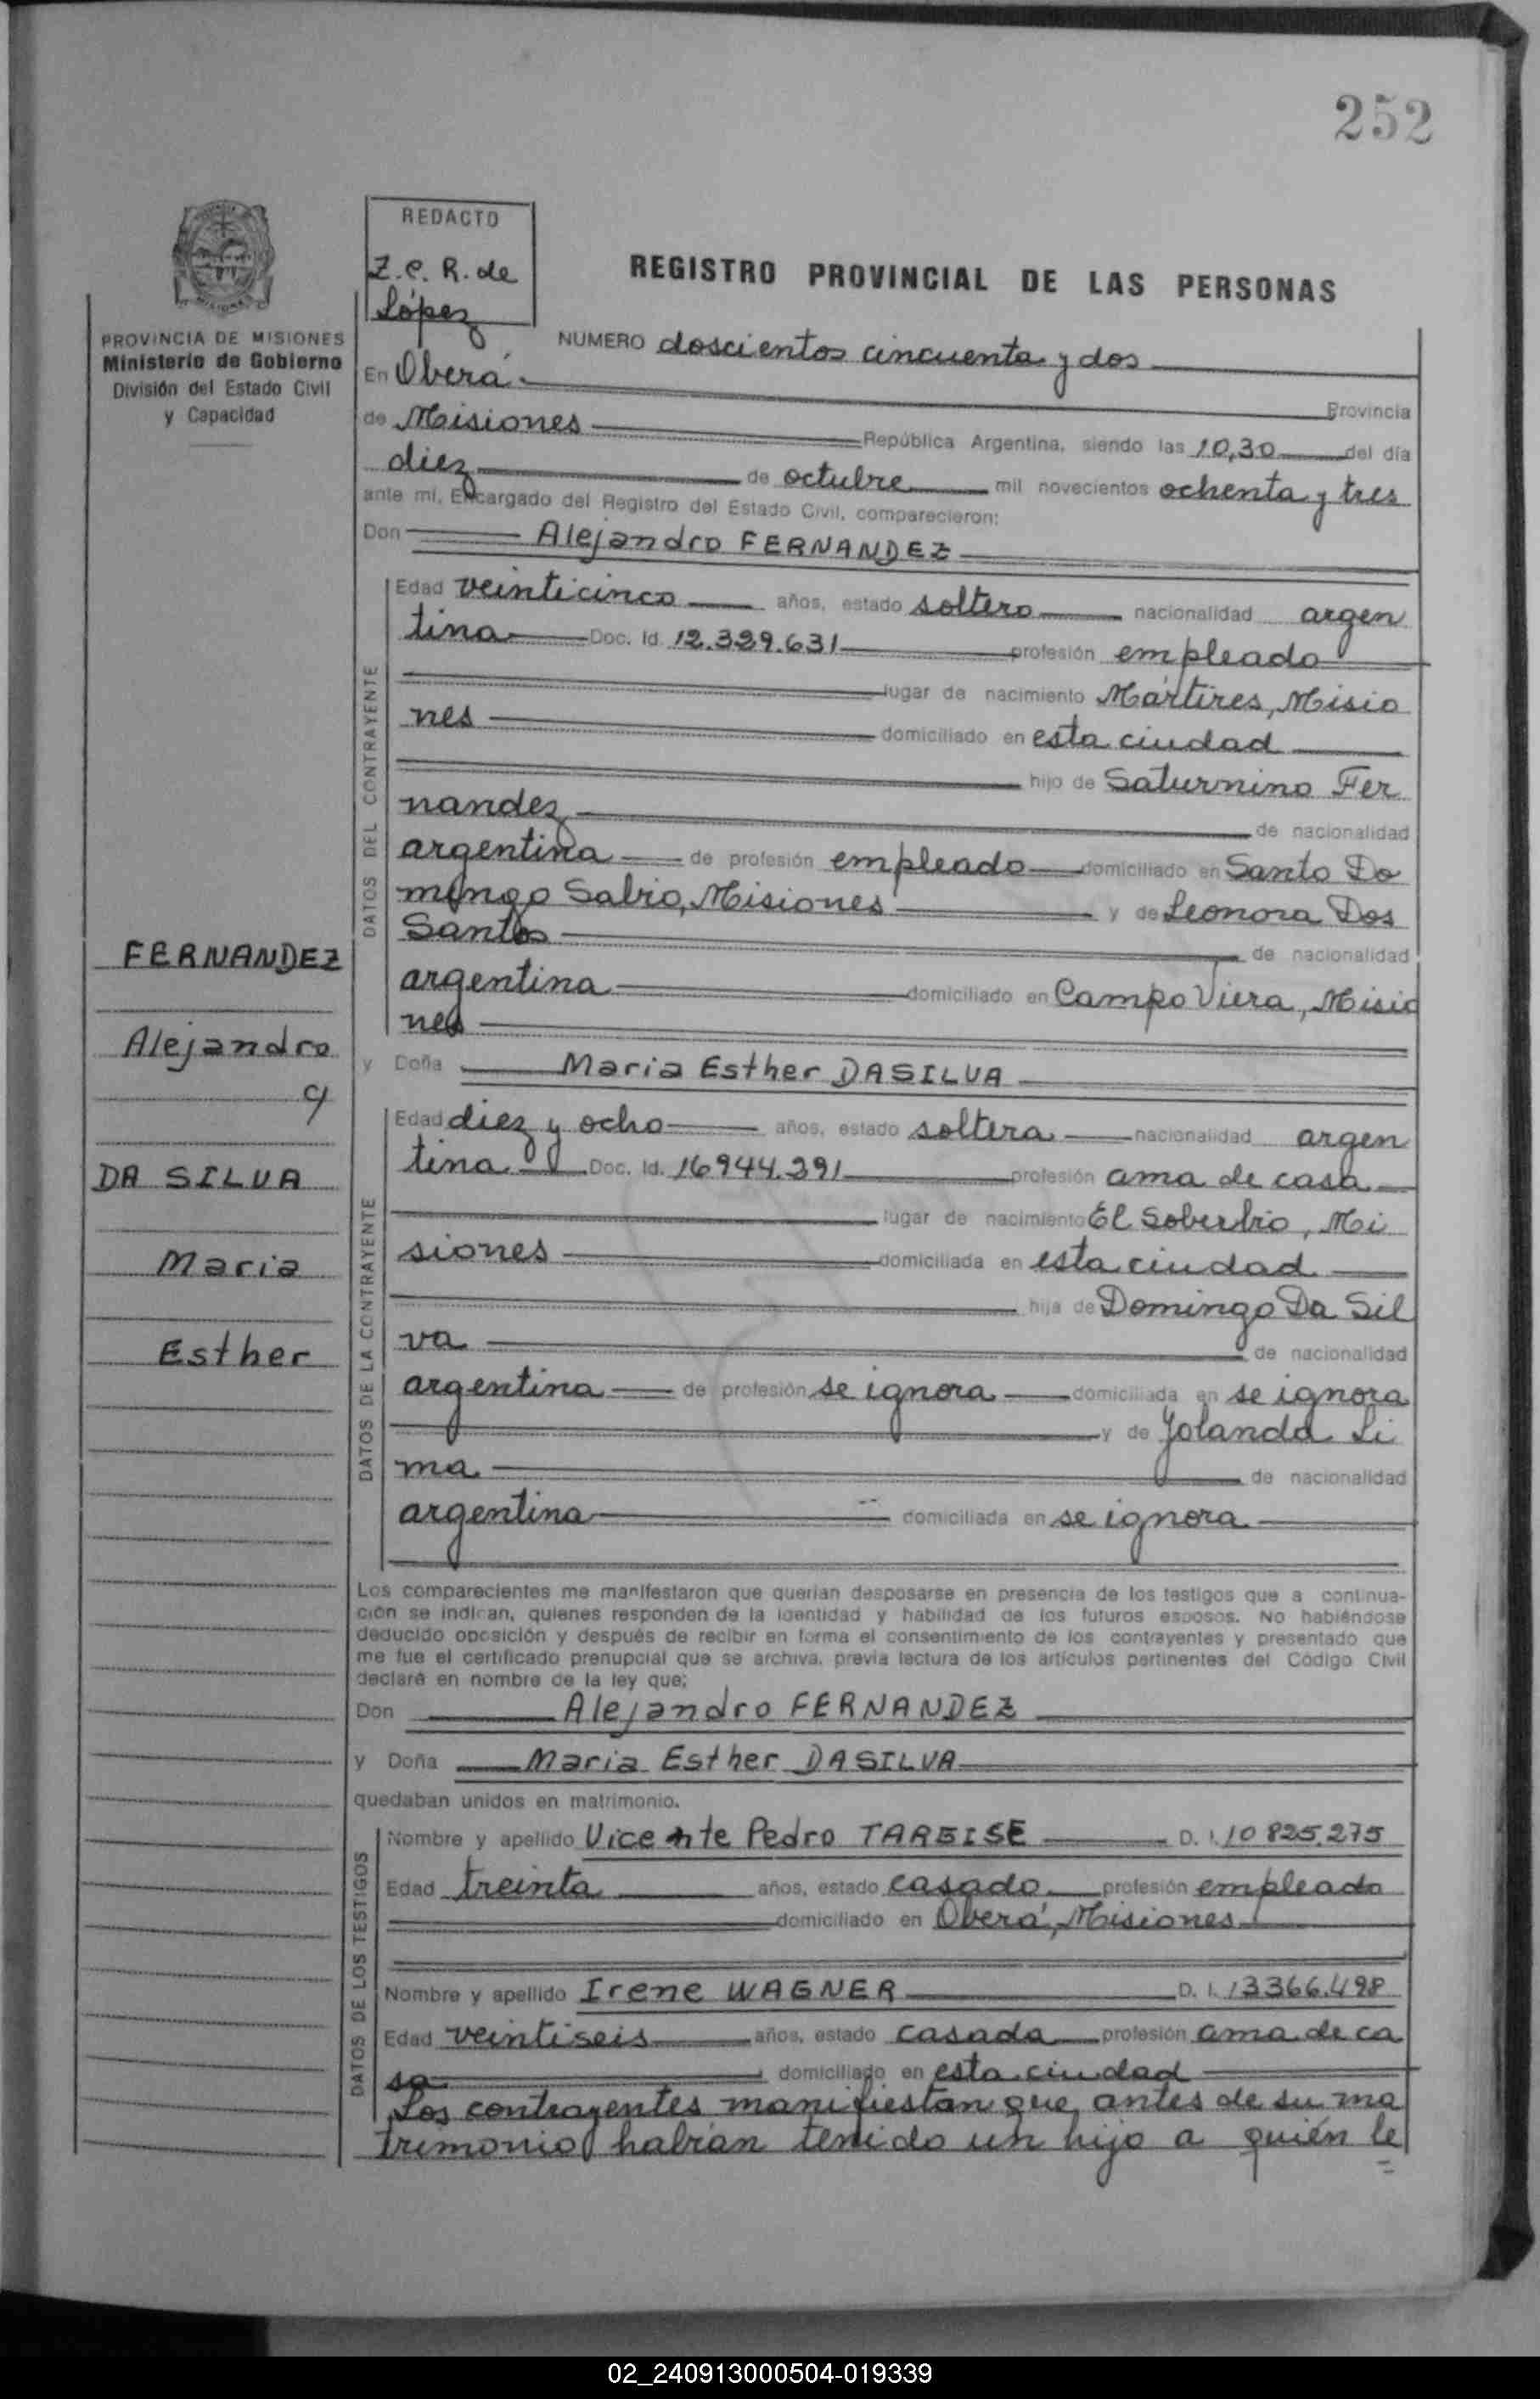 252
REDACTO
Z.C. R. de
López
REGISTRO PROVINCIAL DE LAS PERSONAS
PROVINCIA DE MISIONES
Ministerio de Gobierno
División del Estado Civil
y Capacidad
NUMERO doscientos cincuenta y dos
En Oberá Provincia
de Misiones República Argentina, siendo las 10,30 del día
diez de octubre mil novecientos ochenta y tres
ante mí, Encargado del Registro del Estado Civil, comparecieron:
Don Alejandro FERNANDEZ
DATOS DEL CONTRAYENTE
Edad veinticinco años, estado soltero nacionalidad argen
tina Doc. Id. 12.329.631 profesión empleado
lugar de nacimiento Mártires, Misio
nes domiciliado en esta ciudad
hijo de Saturnino Fer
nandez de nacionalidad
argentina de profesión empleado domiciliado en Santo Do
mingo Sabio, Misiones y de Leonora Dos
Santos de nacionalidad
argentina domiciliado en Campo Viera, Misio
nes
FERNANDEZ
Alejandro
y
DA SILVA
Maria
Esther
y Doña Maria Esther DASILVA
DATOS DE LA CONTRAYENTE
Edad diez y ocho años, estado soltera nacionalidad argen
tina Doc. Id. 16944.391 profesión ama de casa
lugar de nacimiento El Soberbio, Mi
siones domiciliada en esta ciudad
hija de Domingo Da Sil
va de nacionalidad
argentina de profesión se ignora domiciliada en se ignora
y de Yolanda Li
ma de nacionalidad
argentina domiciliada en se ignora
Los comparecientes me manifestaron que querían desposarse en presencia de los testigos que a continua-
ción se indican, quienes responden de la identidad y habilidad de los futuros esposos. No habiéndose
deducido oposición y después de recibir en forma el consentimiento de los contrayentes y presentado que
me fue el certificado prenupcial que se archiva, previa lectura de los artículos pertinentes del Código Civil
declaré en nombre de la ley que:
Don Alejandro FERNANDEZ
y Doña Maria Esther DASILVA
quedaban unidos en matrimonio.
DATOS DE LOS TESTIGOS
Nombre y apellido Vicente Pedro TAREISE D. I. 10 825.275
Edad treinta años, estado casado profesión empleado
domiciliado en Oberá, Misiones
Nombre y apellido Irene WAGNER D. I. 13366.498
Edad veintiseis años, estado casada profesión ama de ca
sa domiciliado en esta ciudad
Los contrayentes manifiestan que antes de su ma
trimonio habían tenido un hijo a quién le
02_240913000504-019339